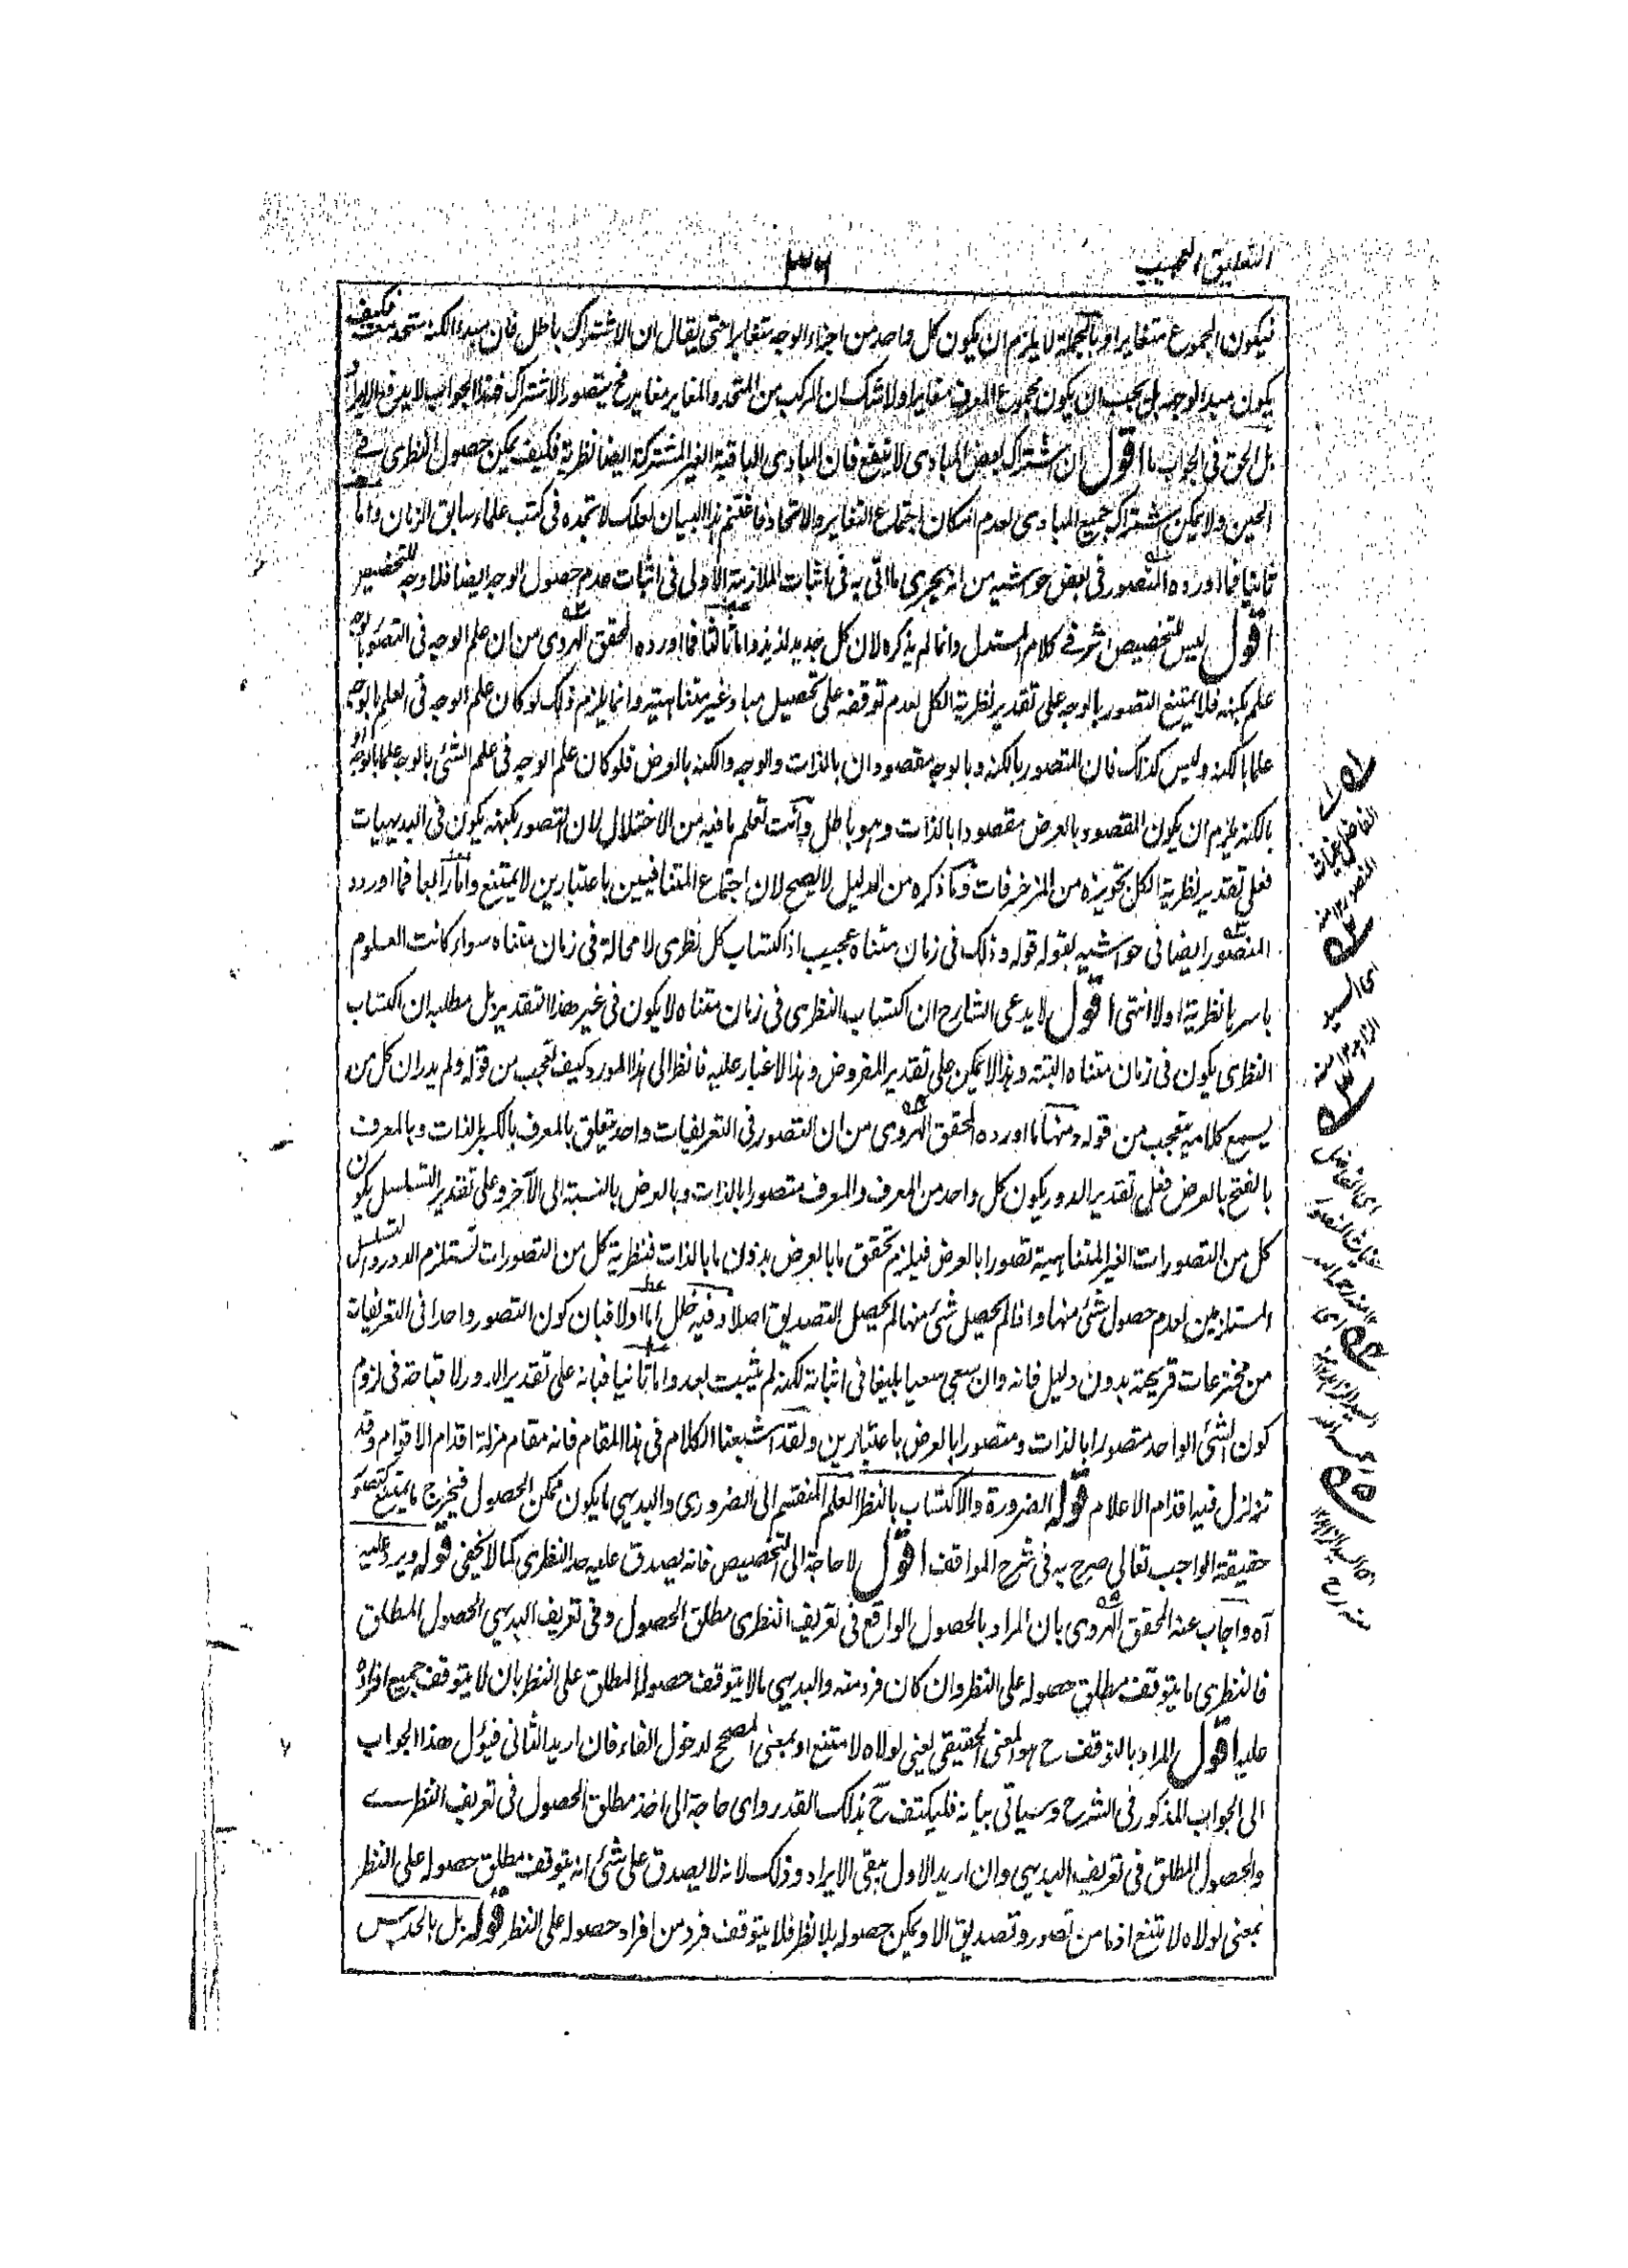 التعليق العجيب
٣٦
فيكون المجموع متغايرا وبالجملة لا يلزم ان يكون كل واحد من اجزاء الوجه متغايرا حتى يقال ان الاشتراك باطل فان مبدء الكنه متحد معه فكيف
يكون مبدء الوجه بل يجب ان يكون مجموع المعرف مغايرا ولا شك ان المركب من المتحد والمغاير مغاير فح يتصور الاشتراك فهذا الجواب لا يدفع الايراد
بل الحق فى الجواب ما اقول ان اشتراك بعض المبادى لا ينفع فان المبادى الباقية الغير المشتركة ايضا نظرية فكيف يمكن حصول النظرى فى
الحين ولا يمكن اشتراك جميع المبادى لعدم امكان اجتماع التغاير والاتحاد فاغتنم هذا البيان لعلك لا تجده فى كتب علماء سابق الزمان واما
ثانيا فما اورده المنصور فى بعض حواشيه من انه يجرى ما اتى به فى اثبات الملازمة الاولى فى اثبات عدم حصول الوجه ايضا فلا وجه للتخصيص
اقول ليس للتخصيص اثر فى كلام المستدل وانما لم يذكره لان كل جديد لذيذ واما ثالثا فما اورده المحقق الهروى من ان علم الوجه فى التصور بالوجه
علم بكنهه فلا يمتنع التصور بالوجه على تقدير نظرية الكل لعدم توقفه على تحصيل مباد غير متناهية وانما يلزم ذلك لو كان علم الوجه فى العلم بالوجه
علما بالكنه وليس كذلك فان المتصور بالكنه وبالوجه مقصودان بالذات والوجه والكنه بالعرض فلو كان علم الوجه فى علم الشئ بالوجه علما بالوجه او
بالكنه يلزم ان يكون المقصود بالعرض مقصودا بالذات وهو باطل وانت تعلم ما فيه من الاختلال لان التصور بكنهه يكون فى البديهيات
فعلى تقدير نظرية الكل تجويزه من المزخرفات وما ذكره من الدليل لا يصح لان اجتماع المتنافيين باعتبارين لا يمتنع واما رابعا فما اورده
المنصور ايضا فى حواشيه بقوله قوله وذلك فى زمان متناه عجيب اذ اكتساب كل نظرى لا محالة فى زمان متناه سواء كانت العلوم
باسرها نظرية او لا انتهى اقول لا يدعى الشارح ان اكتساب النظرى فى زمان متناه لا يكون فى غير هذا التقدير بل مطلبه ان اكتساب
النظرى يكون فى زمان متناه البتة وهذا لا يمكن على تقدير المفروض وهذا لا غبار عليه فانظر الى هذا المورد كيف تعجب من قوله ولم يدر ان كل من
يسمع كلامه يتعجب من قوله ومنها ما اورده المحقق الهروى من ان التصور فى التعريفات واحد يتعلق بالمعرف بالكسر بالذات وبالمعرف
بالفتح بالعرض فعلى تقدير الدور يكون كل واحد من المعرف والمعرف متصورا بالذات وبالعرض بالنسبة الى الآخر وعلى تقدير التسلسل يكون
كل من التصورات الغير المتناهية تصورا بالعرض فيلزم تحقق ما بالعرض بدون ما بالذات فنظرية كل من التصورات تستلزم الدور والتسلسل
المستلزمين لعدم حصول شئ منها واذا لم يحصل شئ منها لم يحصل التصديق اصلا وفيه خلل اما اولا فبان كون التصور واحدا فى التعريفات
من مخترعات قريحته بدون دليل فانه وان سعى سعيا بليغا فى اثباته لكنه لم يثبت بعد واما ثانيا فبانه على تقدير الدور لا قباحة فى لزوم
كون الشئ الواحد متصورا بالذات ومتصورا بالعرض باعتبارين ولقد اشبعنا الكلام فى هذا المقام فانه مقام مزلة اقدام الاقوام وقد
تزلزل فيه اقدام الاعلام قوله الضرورة والاكتساب بالنظر العلم المنقسم الى الضرورى والبديهى ما يكون ممكن الحصول فيخرج ما يمتنع كتصور
حقيقة الواجب تعالى صرح به فى شرح المواقف اقول لا حاجة الى التخصيص فانه يصدق عليه حد النظرى كما لا يخفى قوله ويرد عليه
آه واجاب عنه المحقق الهروى بان المراد بالحصول الواقع فى تعريف النظرى مطلق الحصول وفى تعريف البديهى الحصول المطلق
فالنظرى ما يتوقف مطلق حصوله على النظر وان كان فرد منه والبديهى ما لا يتوقف حصوله المطلق على النظر بان لا يتوقف جميع افراده
عليه اقول المراد بالتوقف ح هو المعنى الحقيقى يعنى لولاه لامتنع او بمعنى المصحح لدخول الفاء فان اريد الثانى فيؤل هذا الجواب
الى الجواب المذكور فى الشرح وسيأتى بيانه فليكتف ح بذلك القدر واى حاجة الى اخذ مطلق الحصول فى تعريف النظرى
والحصول المطلق فى تعريف البديهى وان اريد الاول يبقى الايراد وذلك لانه لا يصدق على شئ انه يتوقف مطلق حصوله على النظر
بمعنى لولاه لامتنع اذ ما من تصور وتصديق الا ويمكن حصوله بلا نظر فلا يتوقف فرد من افراد حصوله على النظر قوله بل بالحدس
الفاضل غياث
المنصور ١٢ منه
اى السيد
الزاهد ١٢ منه
اى الفاضل
غياث المنصور